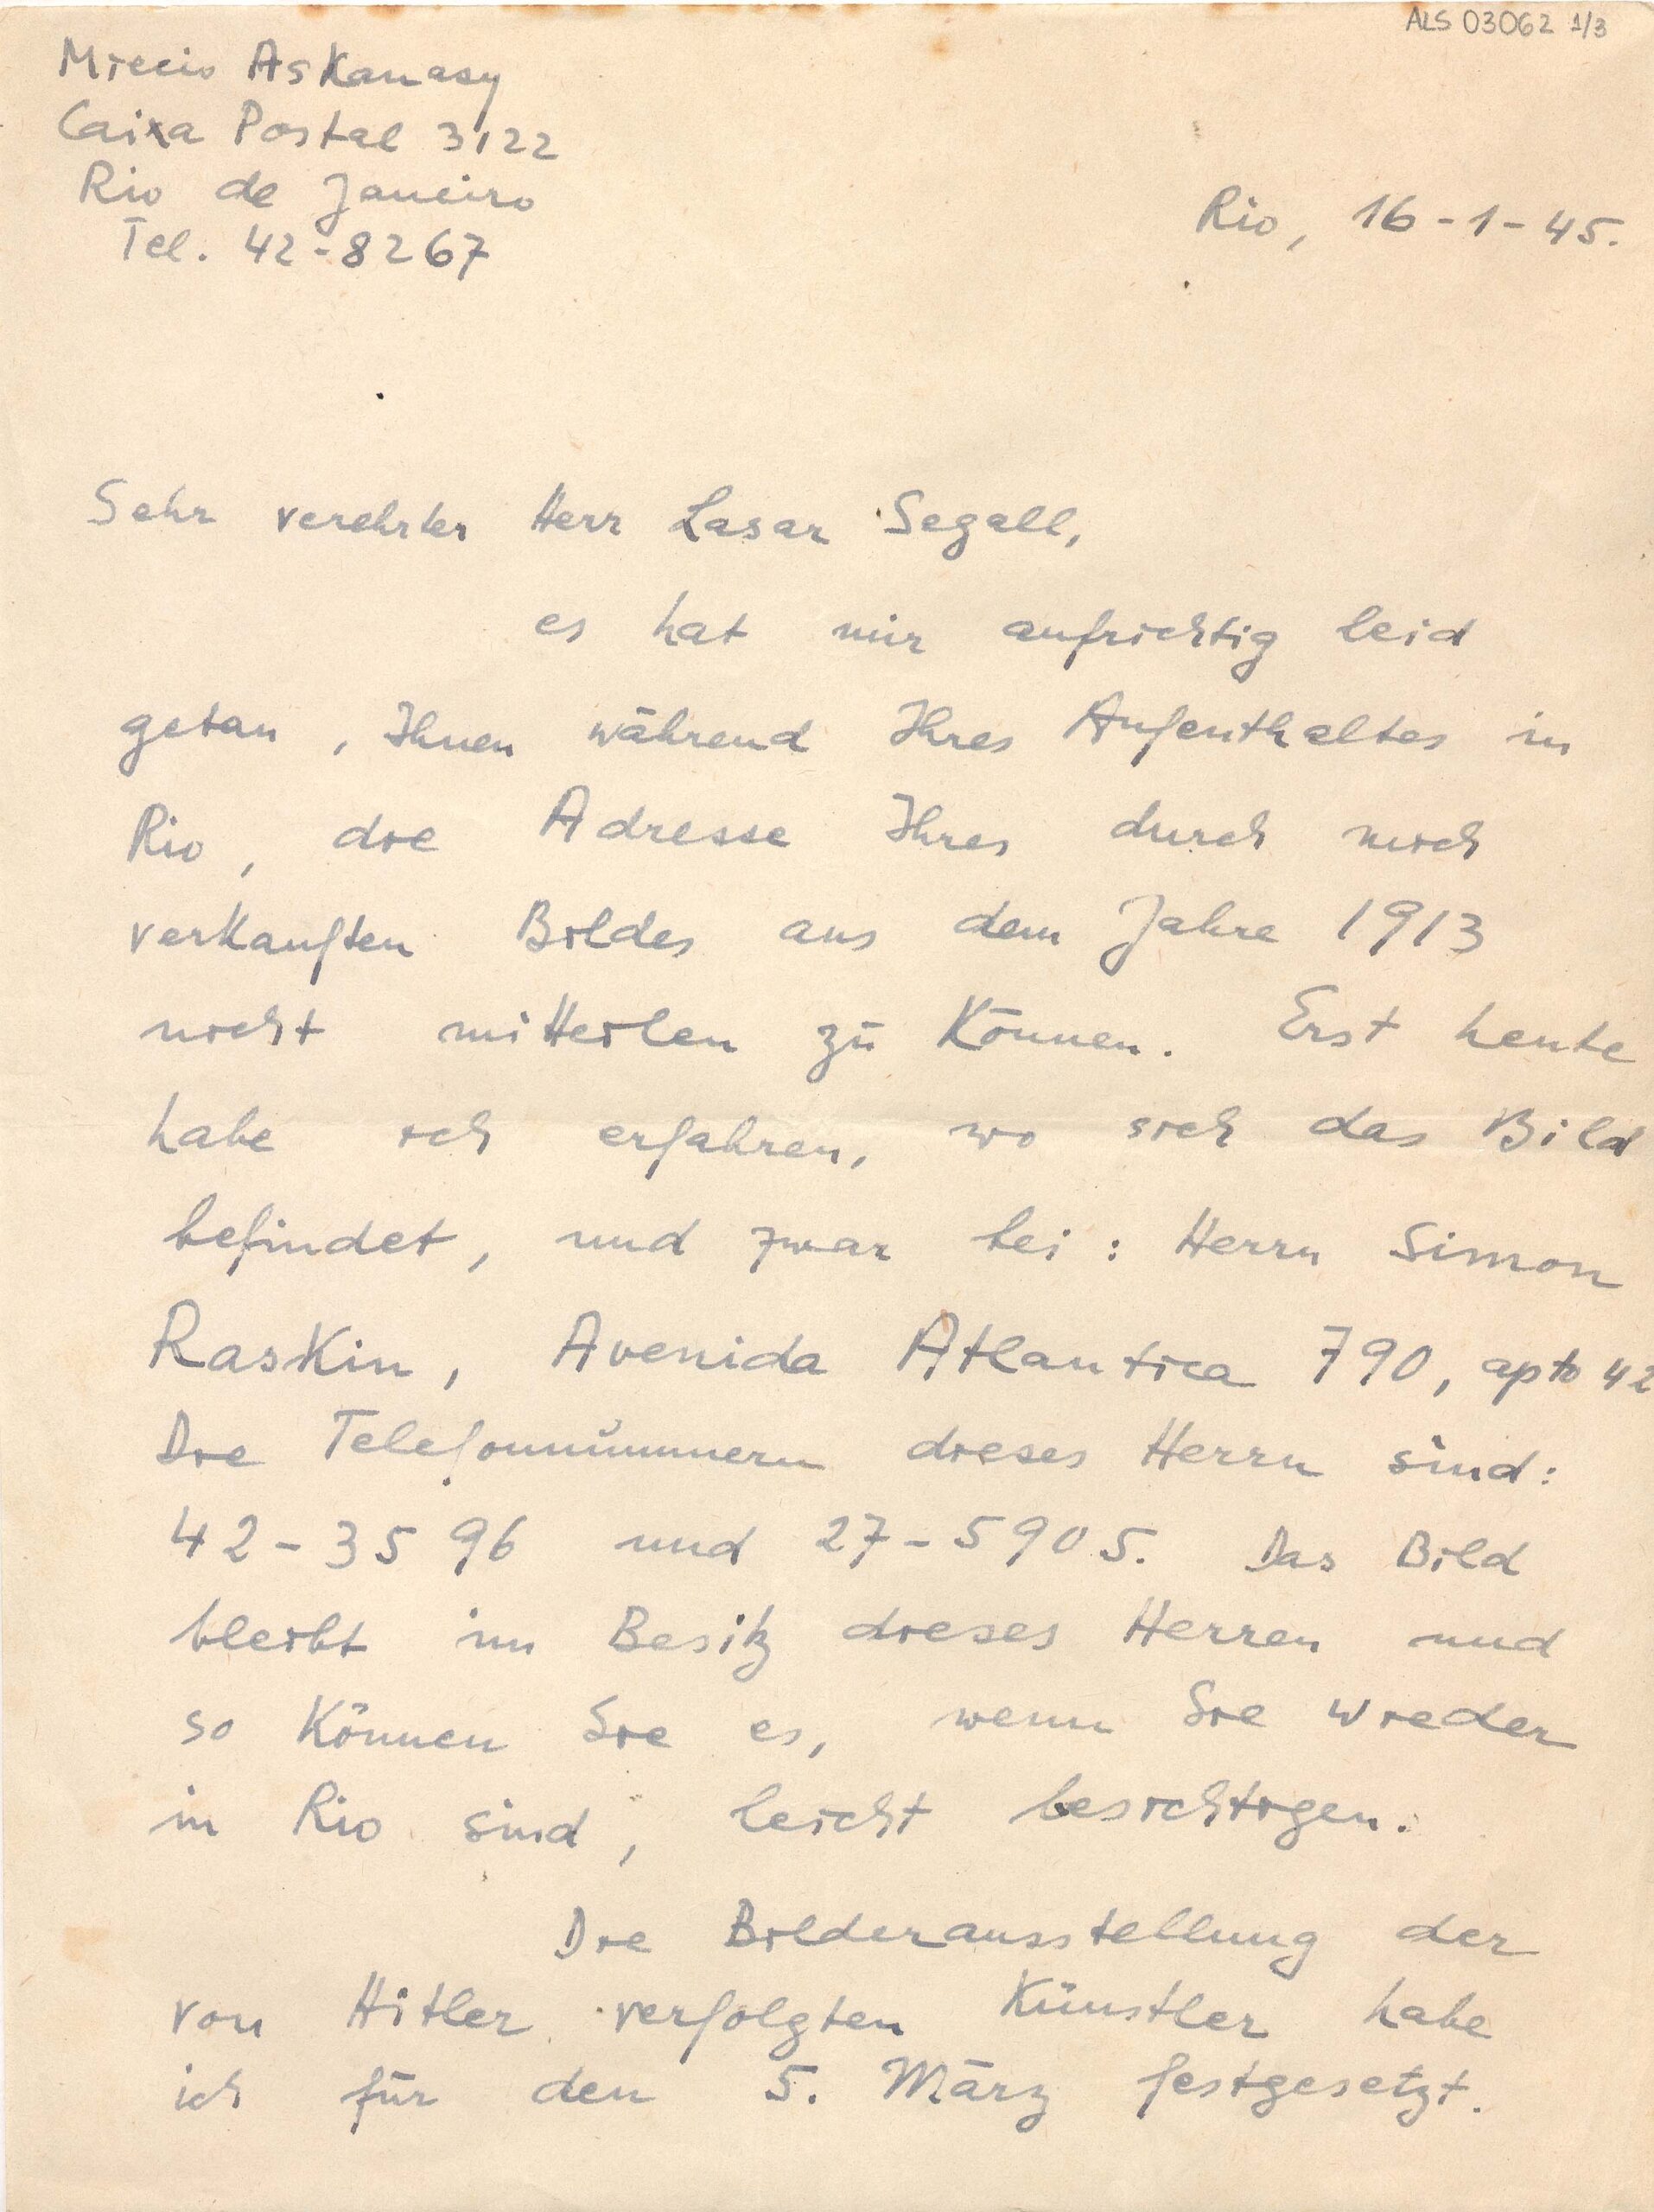 ALS 03062 1/3
Miecio Askanasy
Caixa Postal 3122
Rio de Janeiro
Tel. 42-8267
Rio, 16-1-45.
Sehr verehrter Herr Lasar Segall,
es hat mir aufrichtig leid
getan, Ihnen während Ihres Aufenthaltes in
Rio, die Adresse Ihres durch mich
verkauften Bildes aus dem Jahre 1913
nicht mitteilen zu können. Erst heute
habe ich erfahren, wo sich das Bild
befindet, und zwar bei: Herrn Simon
Raskin, Avenida Atlantica 790, apto 42
Die Telefonnummern dieses Herrn sind:
42-3596 und 27-5905. Das Bild
bleibt im Besitz dieses Herren und
so können Sie es, wenn Sie wieder
in Rio sind, leicht besichtigen.
Die Bilderausstellung der
von Hitler verfolgten Künstler habe
ich für den 5. März festgesetzt.